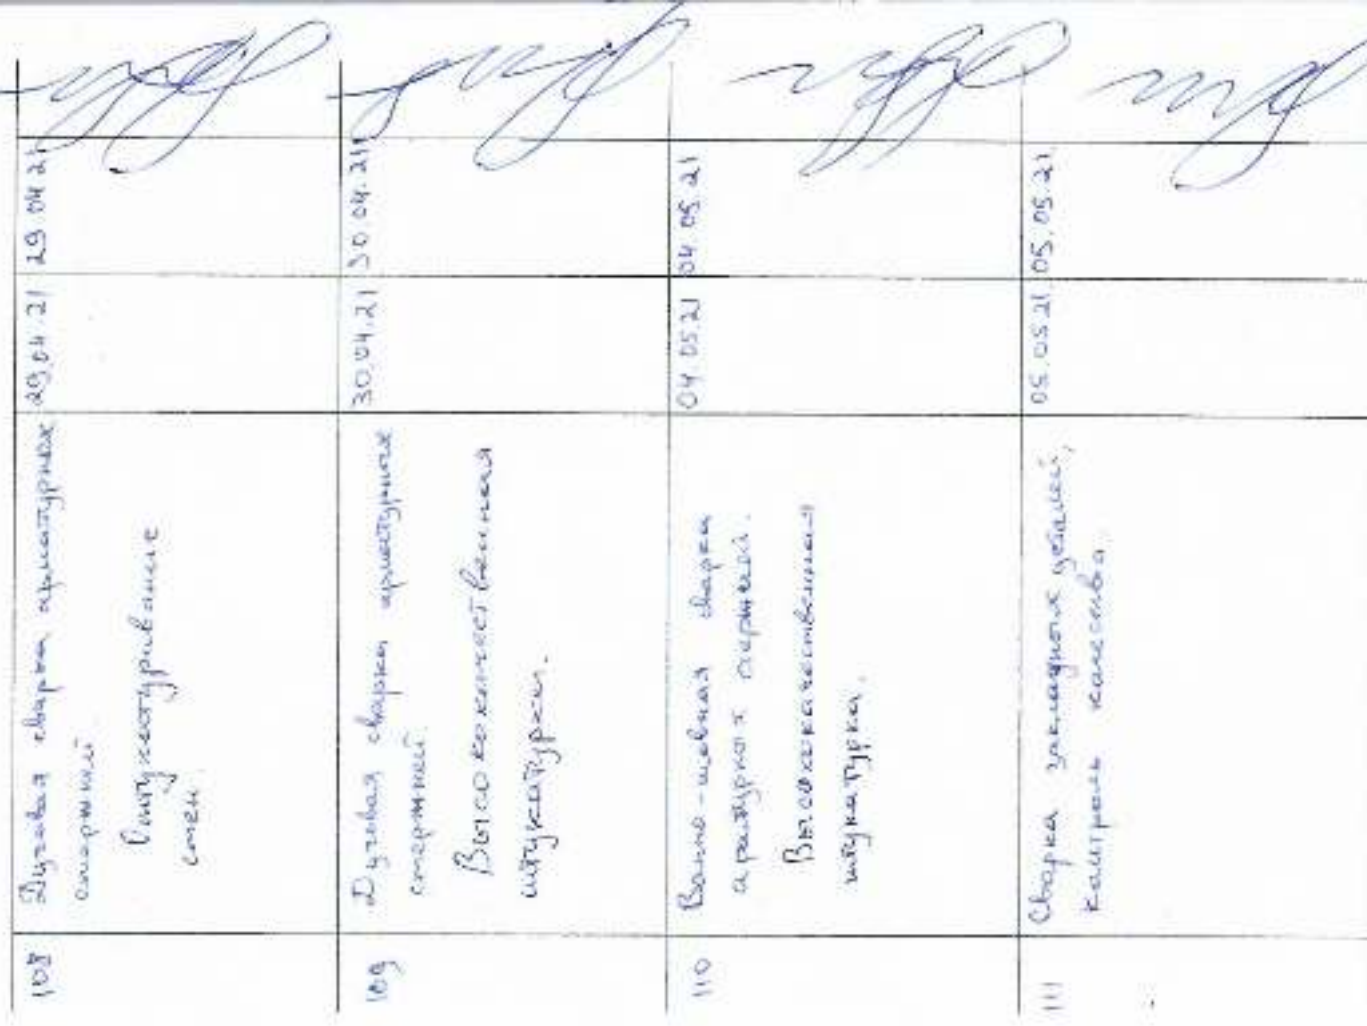 108
Дуговая сварка арматурных
стержней
Оштукатуривание
стен.
29.04.21
29.04.21
109
Дуговая сварка арматурных
стержней.
Высококачественная
штукатурка.
30.04.21
30.04.21
110
Ванно-шовная сварка
арматурных стержней.
Высококачественная
штукатурка.
04.05.21
04.05.21
111
Сварка закладных деталей,
контроль качества
05.05.21
05.05.21